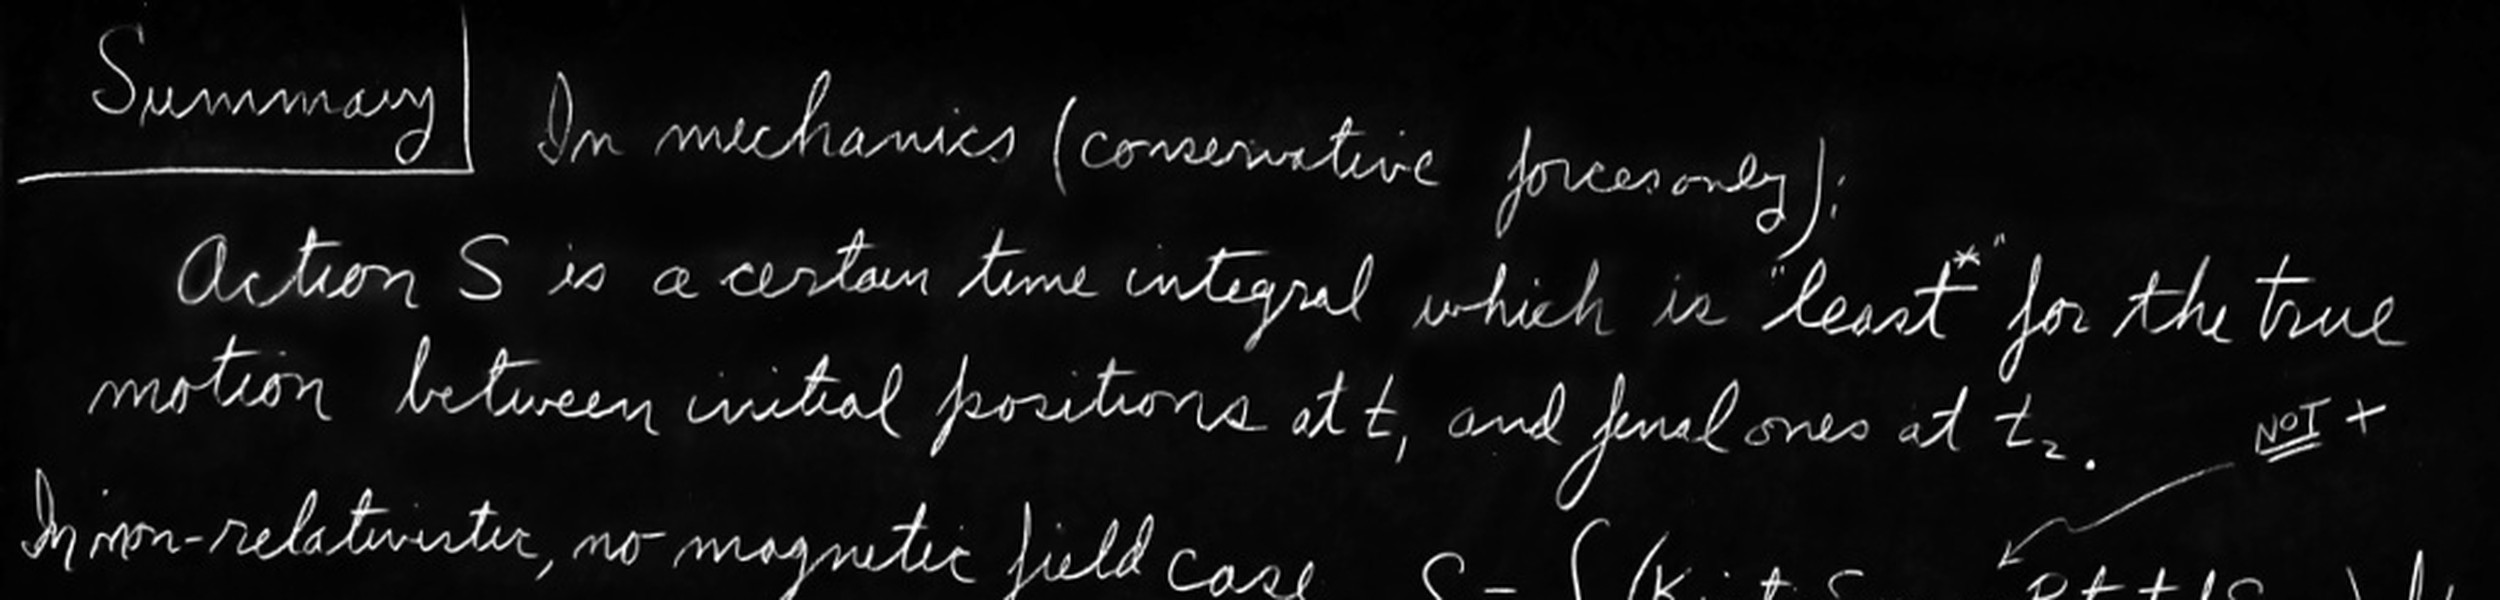 Summary In mechanics (conservative forces only):
Action S is a certain time integral which is "least*" for the true
motion between initial positions at t₁ and final ones at t₂.
NOT +
In non-relativistic, no magnetic field case S = ∫(